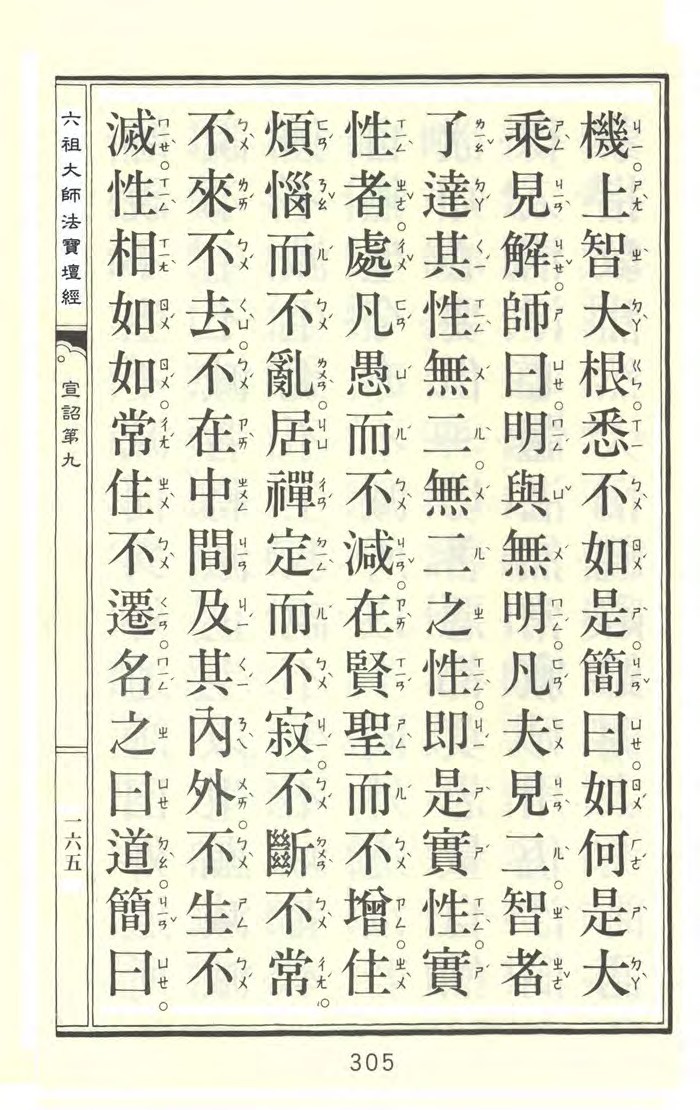 機上智大根悉不如是簡曰如何是大
乘見解師曰明與無明凡夫見二智者
了達其性無二無二之性即是實性實
性者處凡愚而不減在賢聖而不增住
煩惱而不亂居禪定而不寂不斷不常
不來不去不在中間及其內外不生不
滅性相如如常住不遷名之曰道簡曰
六祖大師法寶壇經
宣詔第九
一六五
305